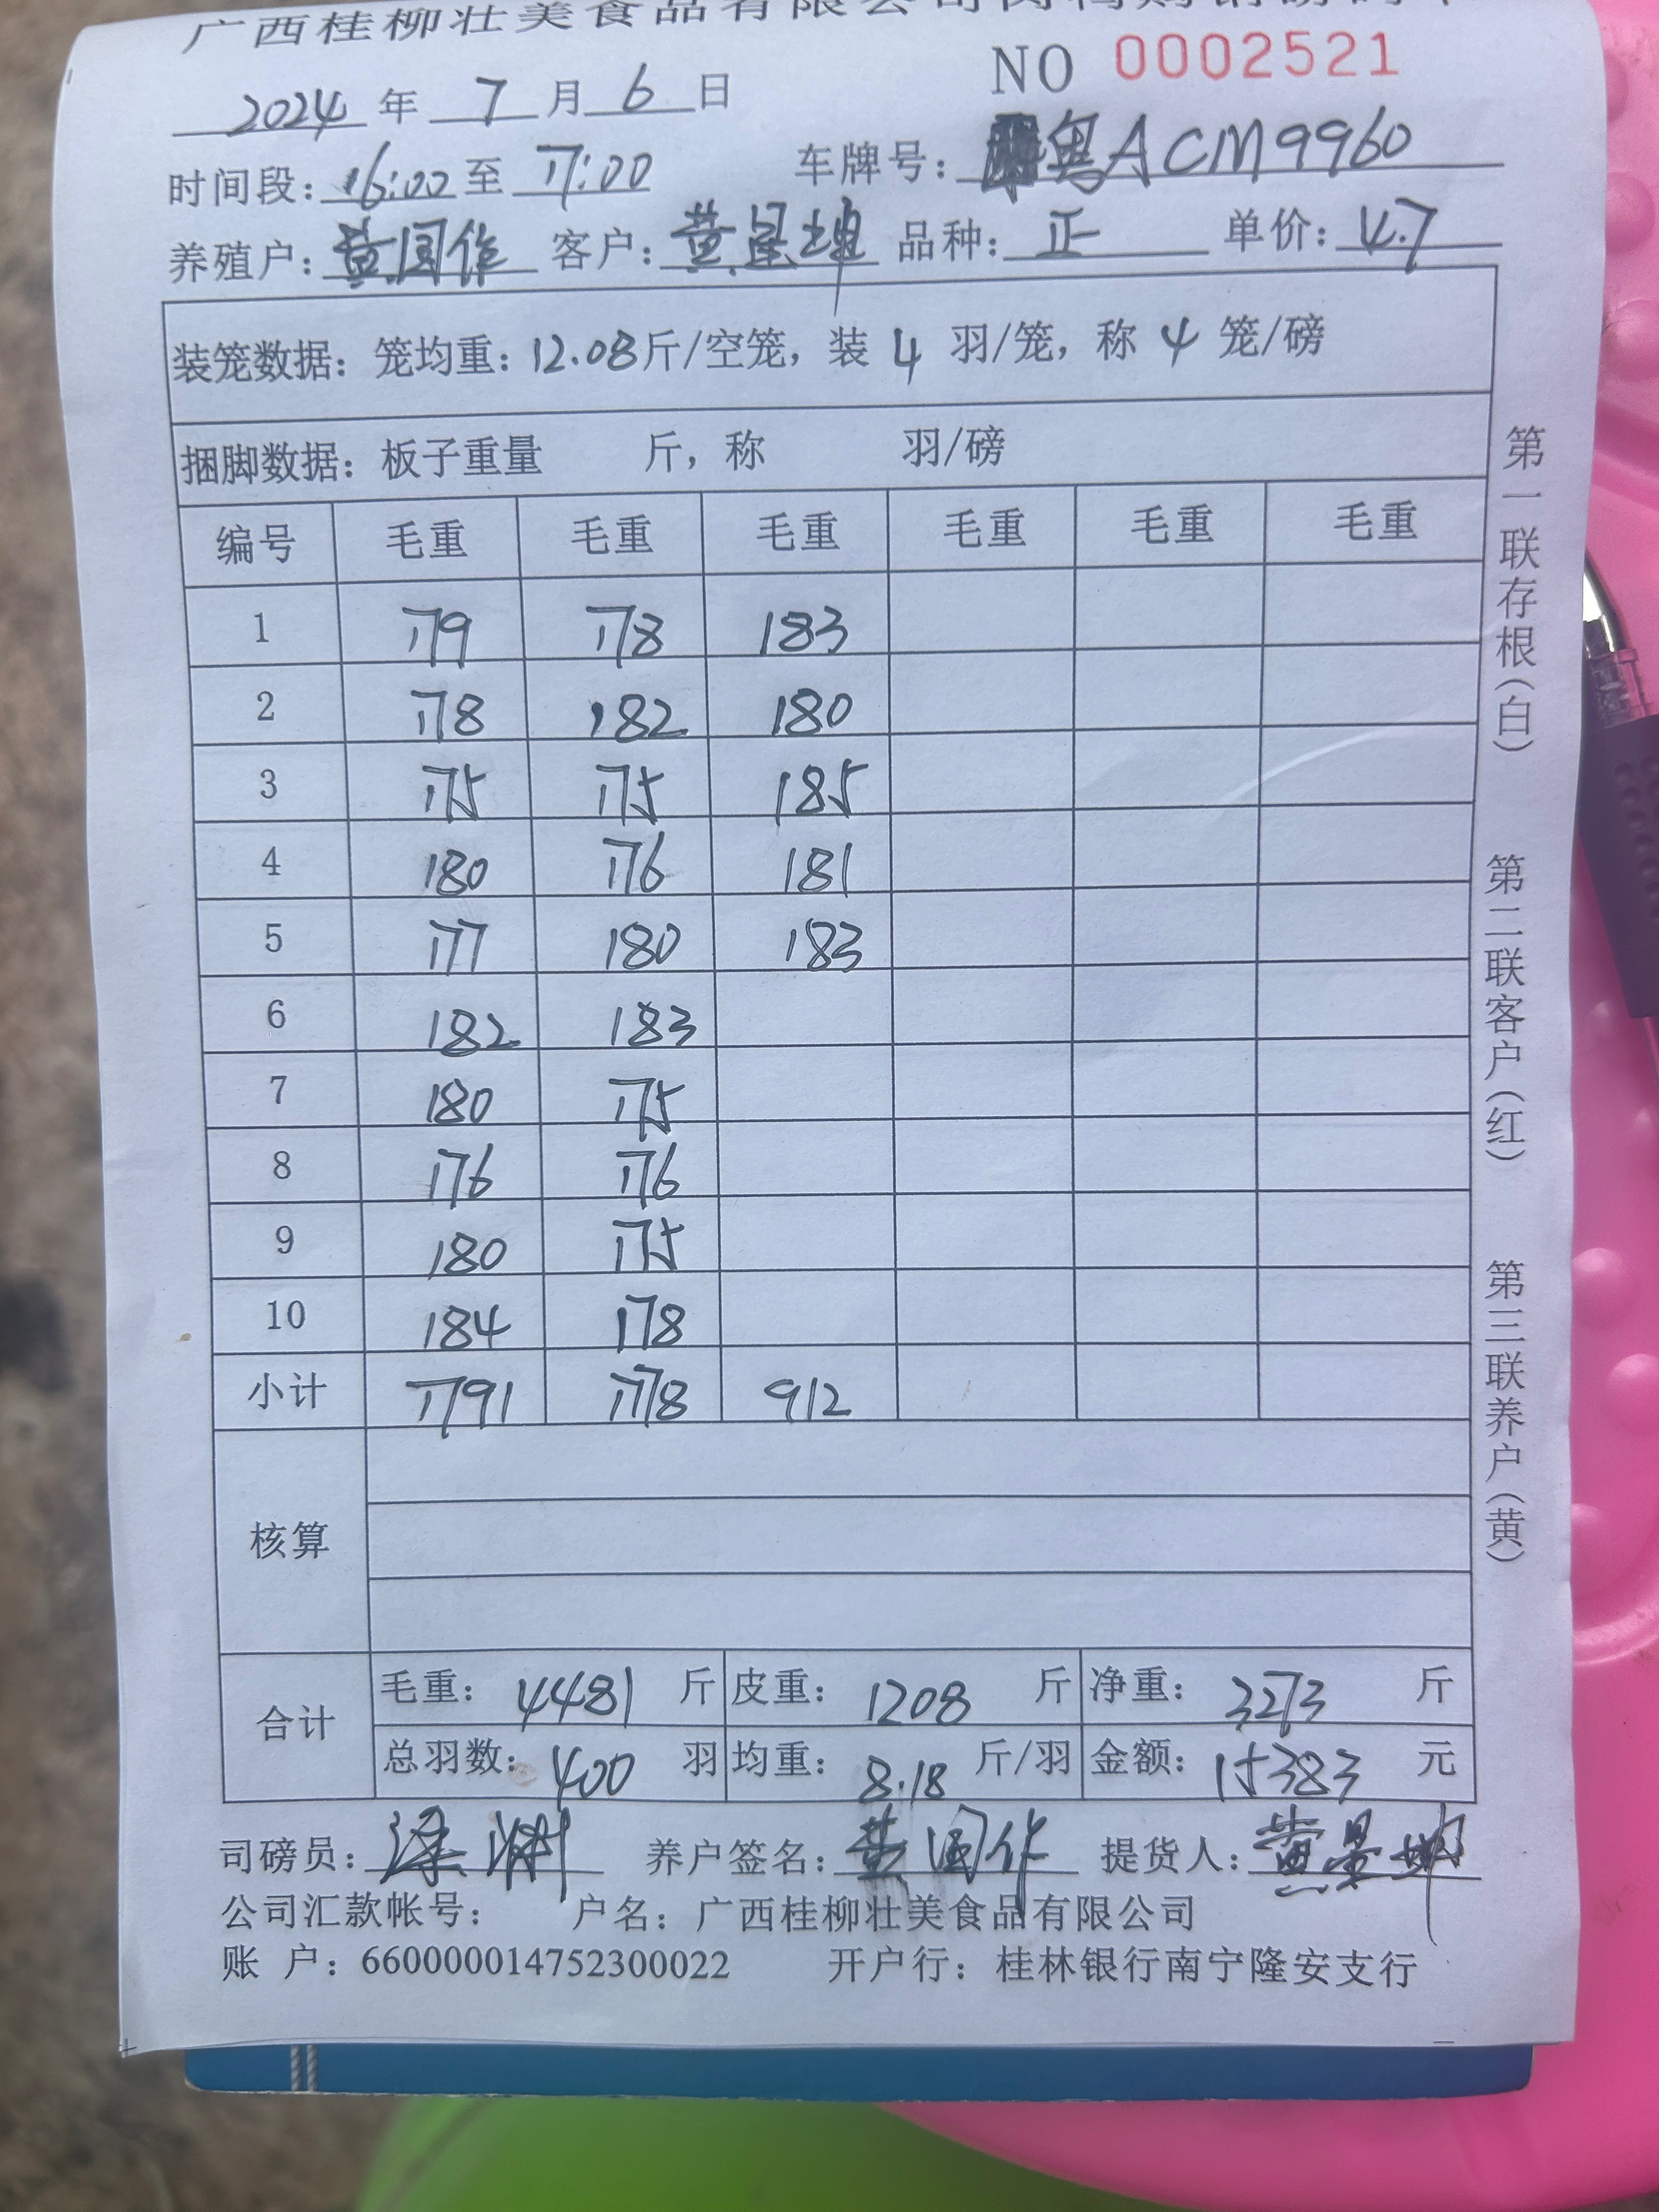 广西桂柳壮美食品有限公司
NO 0002521
2024 年 7 月 6 日
时间段: 16:00 至 17:00 车牌号: 粤ACM9960
养殖户: 黄国作 客户: 黄星 品种: 正 单价: 4.7
装笼数据: 笼均重: 12.08 斤/空笼, 装 4 羽/笼, 称 4 笼/磅
捆脚数据: 板子重量 斤, 称 羽/磅
编号 毛重 毛重 毛重 毛重 毛重 毛重
1 179 178 183
2 178 182 180
3 175 175 185
4 180 176 181
5 177 180 183
6 182 183
7 180 175
8 176 176
9 180 175
10 184 178
小计 1791 1778 912
核算
合计
毛重: 4481 斤 皮重: 1208 斤 净重: 3273 斤
总羽数: 400 羽 均重: 8.18 斤/羽 金额: 15383 元
司磅员: 养户签名: 黄国作 提货人: 黄星
公司汇款帐号: 户名: 广西桂柳壮美食品有限公司
账 户: 660000014752300022 开户行: 桂林银行南宁隆安支行
第一联存根(白) 第二联客户(红) 第三联养户(黄)